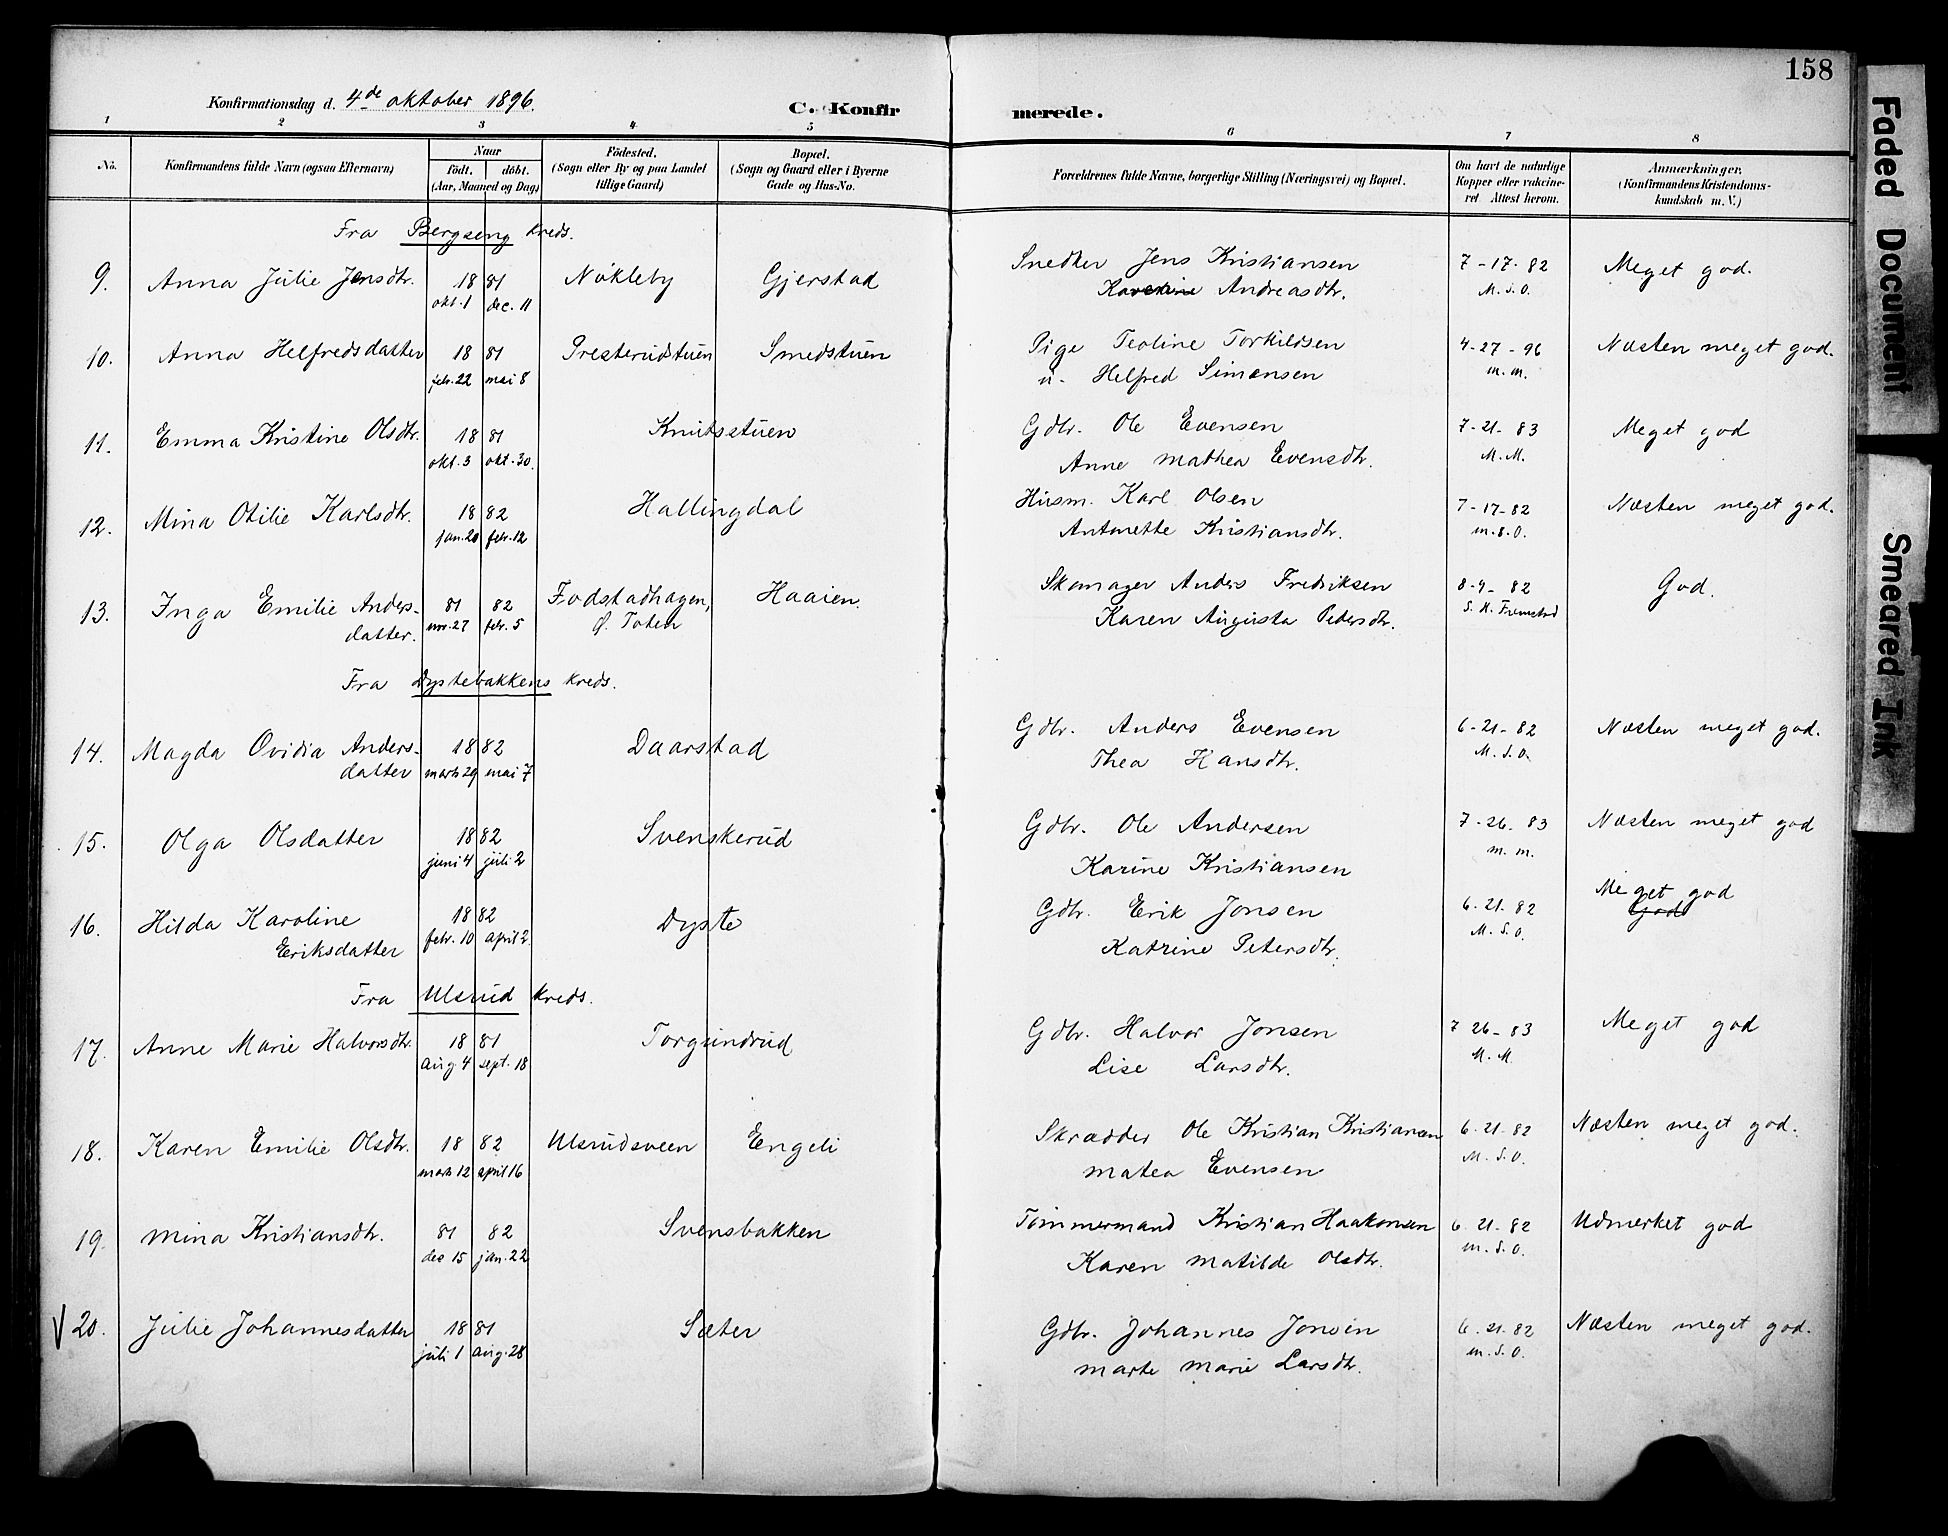 158
Konfirmationsdag d. 4de oktober 1896.
C. Konfirmerede.
1 2 3 4 5 6 7 8
No. Konfirmandens fulde Navn (ogsaa Efternavn) Naar födt. döbt. (Aar, Maaned og Dag) Födested. (Sogn eller By og paa Landet tillige Gaard) Bopæl. (Sogn og Gaard eller i Byerne Gade og Hus-No. Forældrenes fulde Navne, borgerlige Stilling (Næringsvei) og Bopæl. Om havt de naturlige Kopper eller vakcineret Attest herom. Anmærkninger. (Konfirmandens Kristendomskundskab m. V.)
Fra Bergseng kreds.
9. Anna Julie Jensdtr. 18 81 Nökleby Gjerstad Snedker Jens Kristiansen 7-17-82 Meget god.
okt. 1 dec. 11 Andreasdtr. M. S. O.
10. Anna Helfredsdatter 18 81 Presterudstuen Smedstuen Pige Teoline Torkildsen 4-27-96 Næsten meget god.
febr. 22 mai 8 u. Helfred Simensen m. m.
11. Emma Kristine Olsdtr. 18 81 Knutsstuen Gdbr. Ole Evensen 7-21-83 Meget god
okt. 3 okt. 30. Anne Mathea Evensdtr. M. M.
12. Mina Otilie Karlsdtr. 18 82 Hallingdal Husm. Karl Olsen 7-17-82 Næsten meget god.
jan. 20 febr. 12 Antonette Kristiansdtr. m. S. O.
13. Inga Emilie Anders- 81 82 Fodstadhagen, Haaien. Skomager Anders Fredriksen 8-9-82 God.
datter. nov. 27 febr. 5 Ö. Toten Karen Augusta Petersdtr. S. H.
Fra Dystebakkens kreds.
14. Magda Ovidia Anders- 18 82 Daarstad Gdbr. Anders Evensen 6-21-82 Næsten meget god.
datter marts 29 mai 7 Thea Hansdtr. M. S. O.
15. Olga Olsdatter 18 82 Svenskerud Gdbr. Ole Andersen 7-26-83 Næsten meget god
juni 4 juli 2 Karine Kristiansen m. m.
16. Hilda Karoline 18 82 Dyste Gdbr. Erik Jonsen 6-21-82 Meget god
Eriksdatter febr. 10 april 2. Katrine Petersdtr. M. S. O. God
Fra Ulsrud kreds.
17. Anne Marie Halvorsdtr. 18 81 Torgundrud Gdbr. Halvor Jonsen 7 26-83 Meget god
aug. 4 sept. 18 Lise Larsdtr. M. M.
18. Karen Emilie Olsdtr. 18 82 Ulsrudsveen Engeli Skrædder Ole Kristian Kristiansen 6-21-82 Næsten meget god.
marts 12 april 16 Matea Evensen M. S. O.
19. Mina Kristiansdtr. 81 82 Svensbakken Tömmermand Kristian Haakonsen 6. 21. 82 Udmerket god
des 15 jan. 22 Karen Matilde Olsdtr. m. S. O.
V 20. Julie Johannesdatter 18 81 Sæter Gdbr. Johannes Jonsen 6. 21. 82 Næsten meget god.
juli 1 aug. 28 Marte Marie Larsdtr. m. S. O.
Faded Document
Smeared Ink